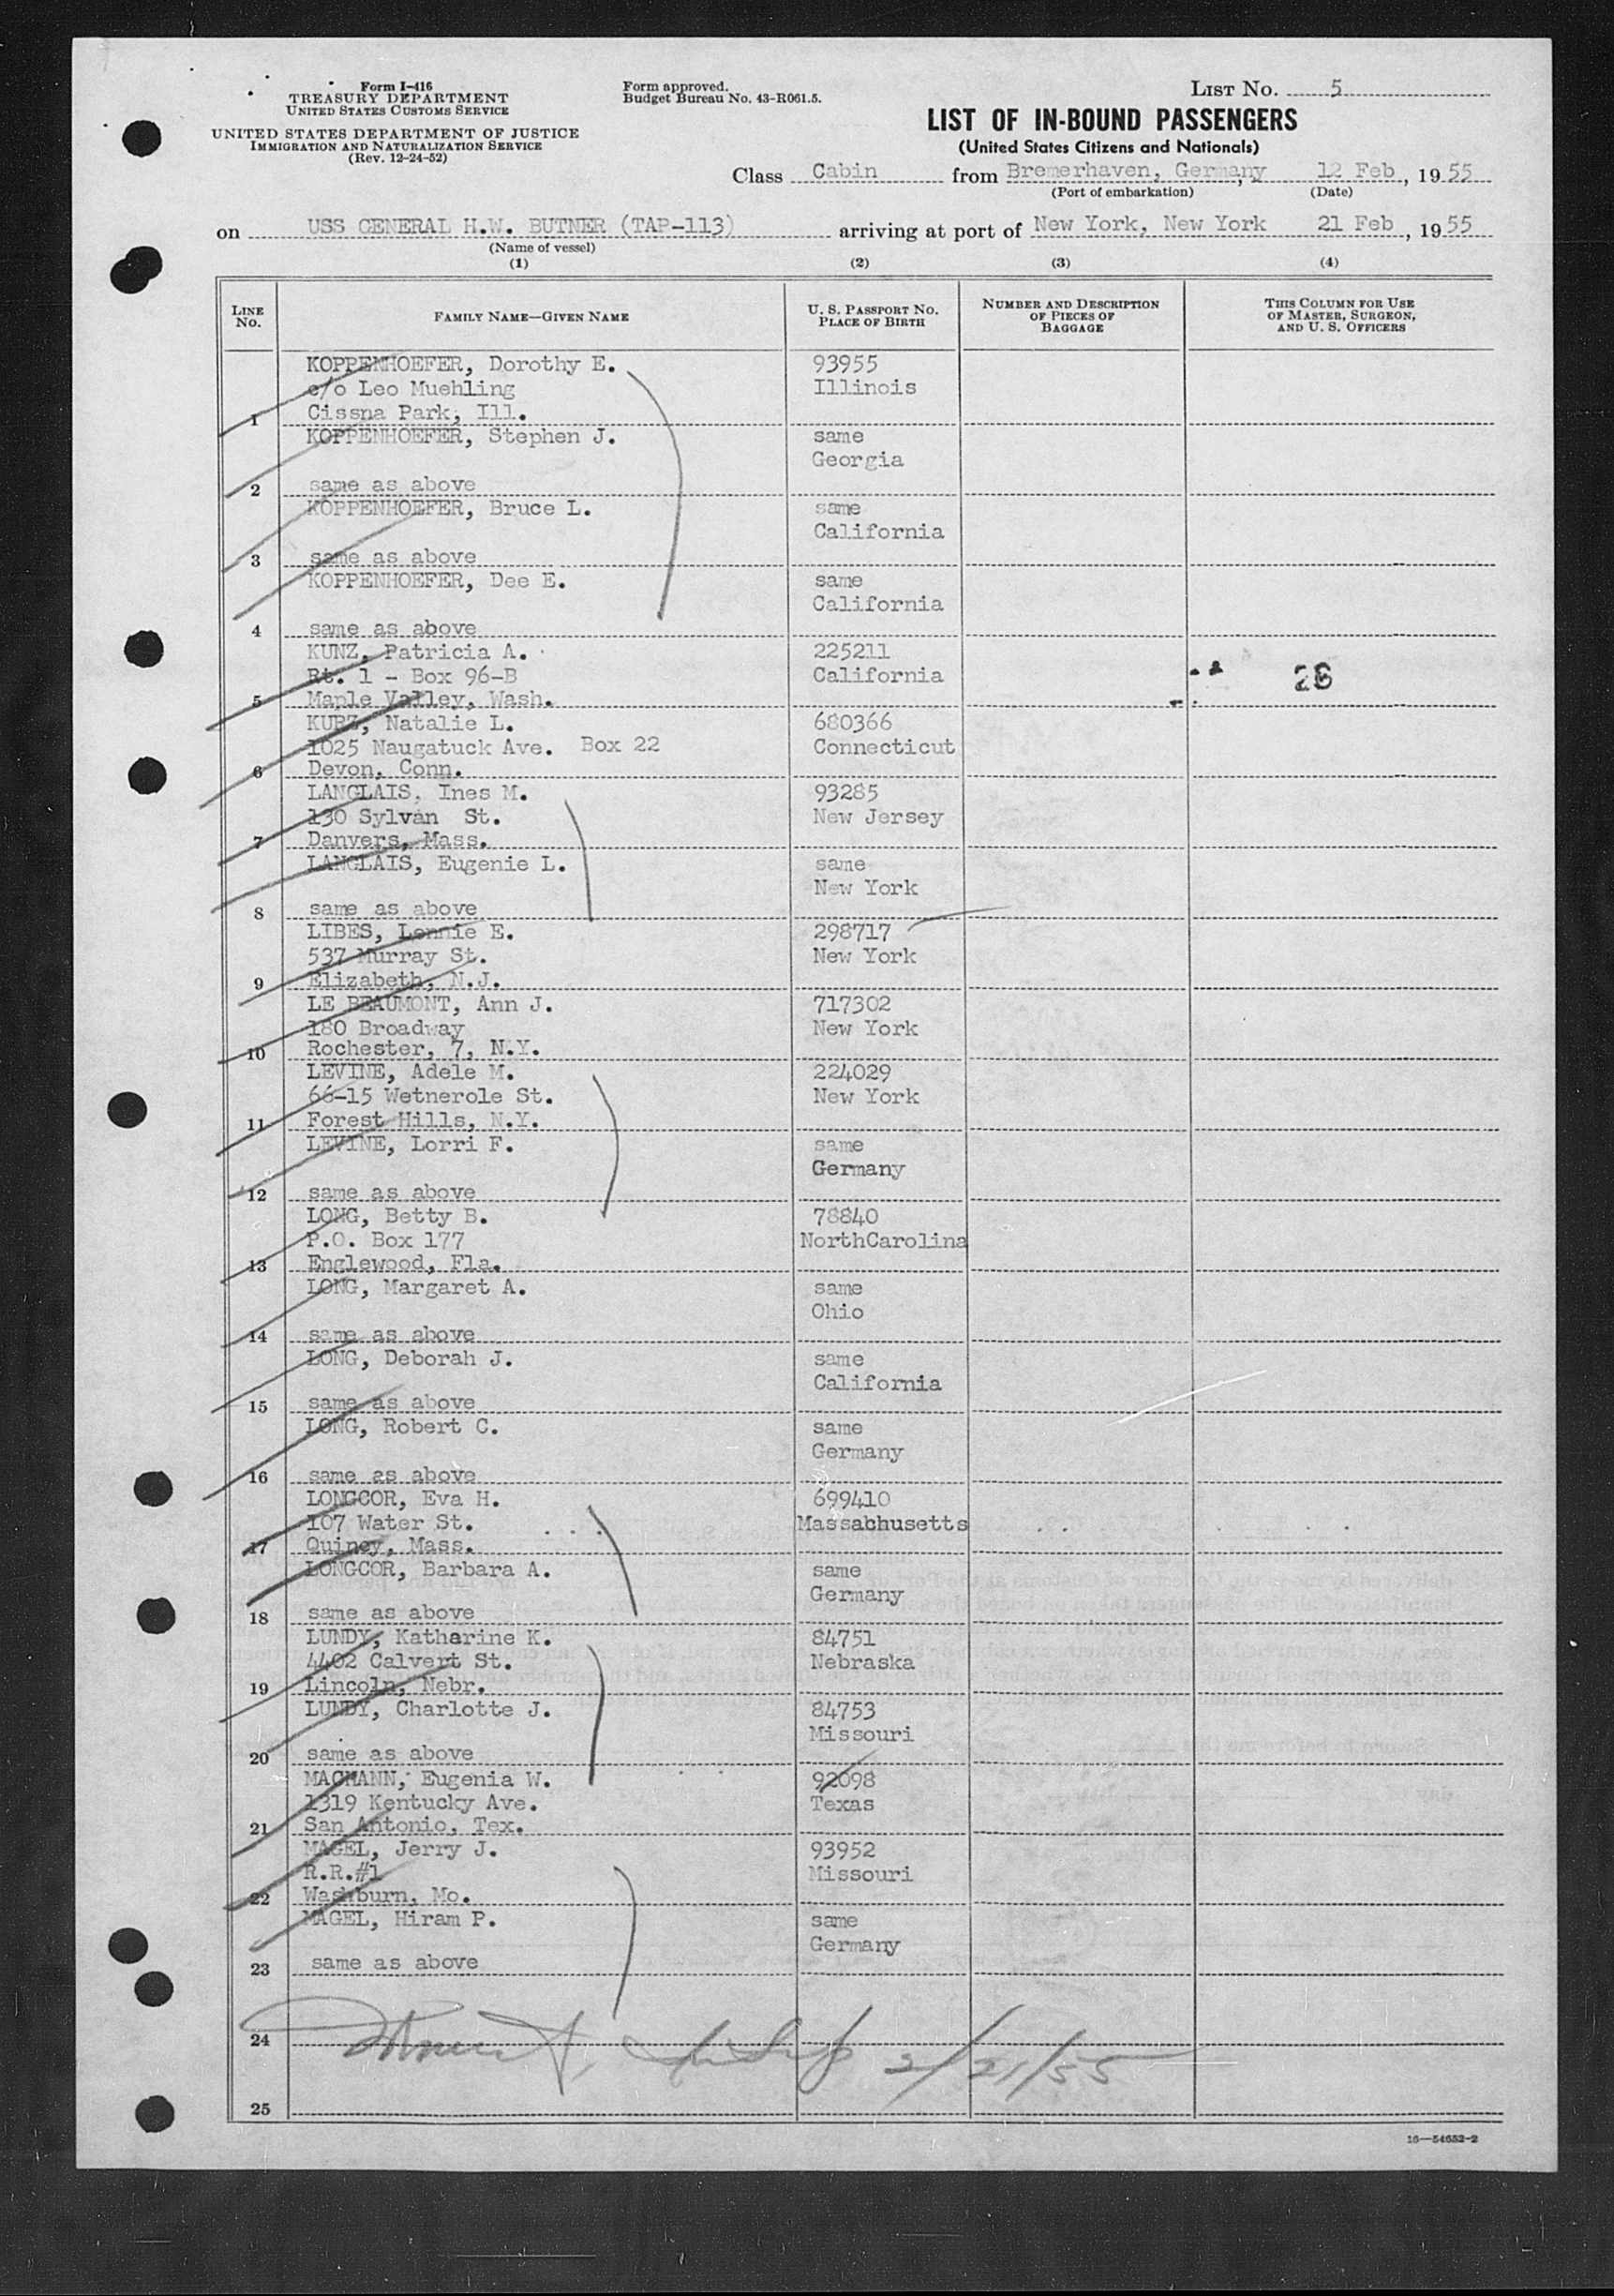 Form I-416
TREASURY DEPARTMENT
UNITED STATES CUSTOMS SERVICE
UNITED STATES DEPARTMENT OF JUSTICE
IMMIGRATION AND NATURALIZATION SERVICE
(Rev. 12-24-52)
Form approved.
Budget Bureau No. 43-R061.5.
LIST No. 5
LIST OF IN-BOUND PASSENGERS
(United States Citizens and Nationals)
Class Cabin from Bremerhaven, Germany, 12 Feb, 1955
(Port of embarkation) (Date)
on USS GENERAL H.W. BUTNER (TAP-113) arriving at port of New York, New York 21 Feb, 1955
(Name of vessel)
(1) (2) (3) (4)
LINE No. FAMILY NAME—GIVEN NAME U. S. PASSPORT NO. PLACE OF BIRTH NUMBER AND DESCRIPTION OF PIECES OF BAGGAGE THIS COLUMN FOR USE OF MASTER, SURGEON, AND U. S. OFFICERS
KOPPENHOEFER, Dorothy E. 93955
c/o Leo Muehling Illinois
1 Cissna Park, Ill.
KOPPENHOEFER, Stephen J. same
Georgia
2 same as above
KOPPENHOEFER, Bruce L. same
California
3 same as above
KOPPENHOEFER, Dee E. same
California
4 same as above
KUNZ, Patricia A. 225211
Rt. 1 - Box 96-B California 26
5 Maple Valley, Wash.
KURZ, Natalie L. 680366
1025 Naugatuck Ave. Box 22 Connecticut
6 Devon, Conn.
LANGLAIS, Ines M. 93285
130 Sylvan St. New Jersey
7 Danvers, Mass.
LANGLAIS, Eugenie L. same
New York
8 same as above
LIBES, Lennie E. 298717
537 Murray St. New York
9 Elizabeth, N.J.
LE BEAUMONT, Ann J. 717302
180 Broadway New York
10 Rochester, 7, N.Y.
LEVINE, Adele M. 224029
66-15 Wetnerole St. New York
11 Forest Hills, N.Y.
LEVINE, Lorri F. same
Germany
12 same as above
LONG, Betty B. 78840
P.O. Box 177 NorthCarolina
13 Englewood, Fla.
LONG, Margaret A. same
Ohio
14 same as above
LONG, Deborah J. same
California
15 same as above
LONG, Robert C. same
Germany
16 same as above
LONGCOR, Eva H. 699410
107 Water St. Massachusetts
17 Quincy, Mass.
LONGCOR, Barbara A. same
Germany
18 same as above
LUNDY, Katharine K. 84751
4402 Calvert St. Nebraska
19 Lincoln, Nebr.
LUNDY, Charlotte J. 84753
Missouri
20 same as above
MACMANN, Eugenia W. 92098
1319 Kentucky Ave. Texas
21 San Antonio, Tex.
MAGEL, Jerry J. 93952
R.R.#1 Missouri
22 Washburn, Mo.
MAGEL, Hiram P. same
Germany
23 same as above
24
2/21/55
25
16—54652-2